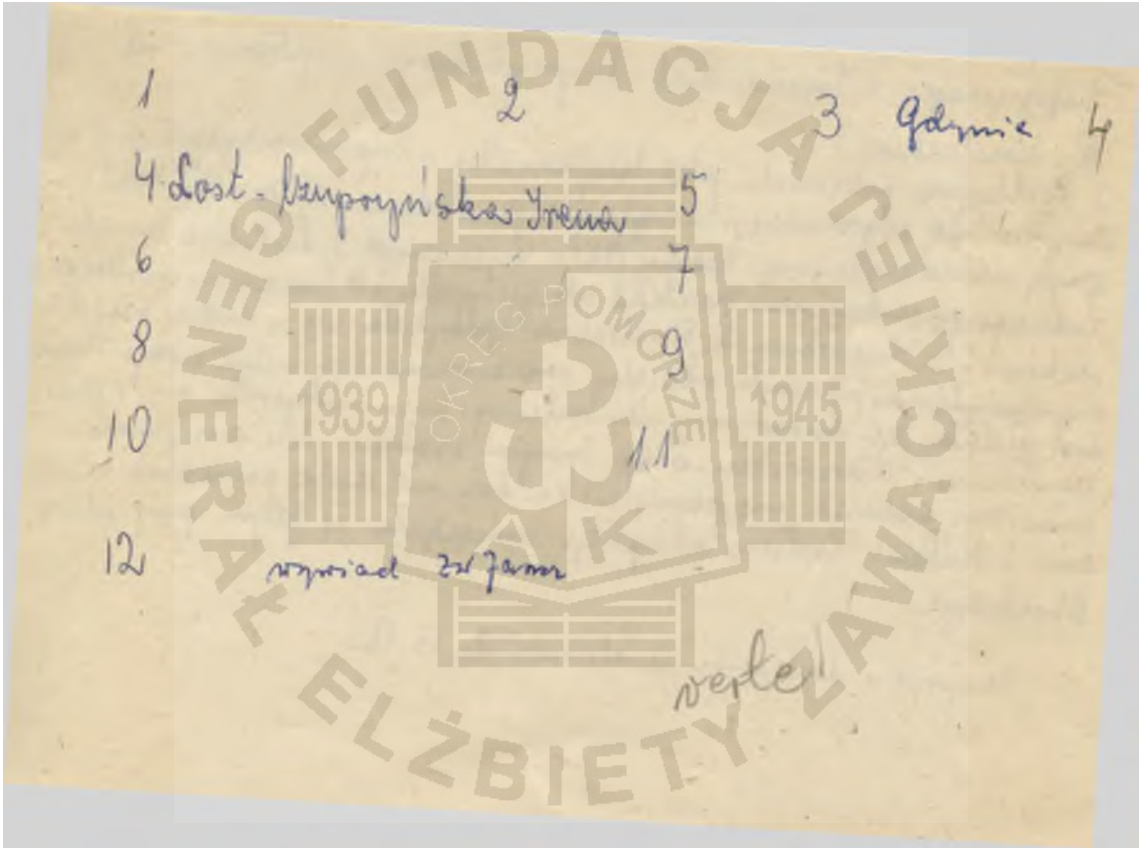 1 2 3 Gdynia 4
4. Lost - Czupryńska Irena 5
6 7
8 9
10 11
12 wywiad ZWZ
verte!
FUNDACJA GENERAŁ ELŻBIETY ZAWACKIEJ
OKRĘG POMORZE
1939 1945
AK